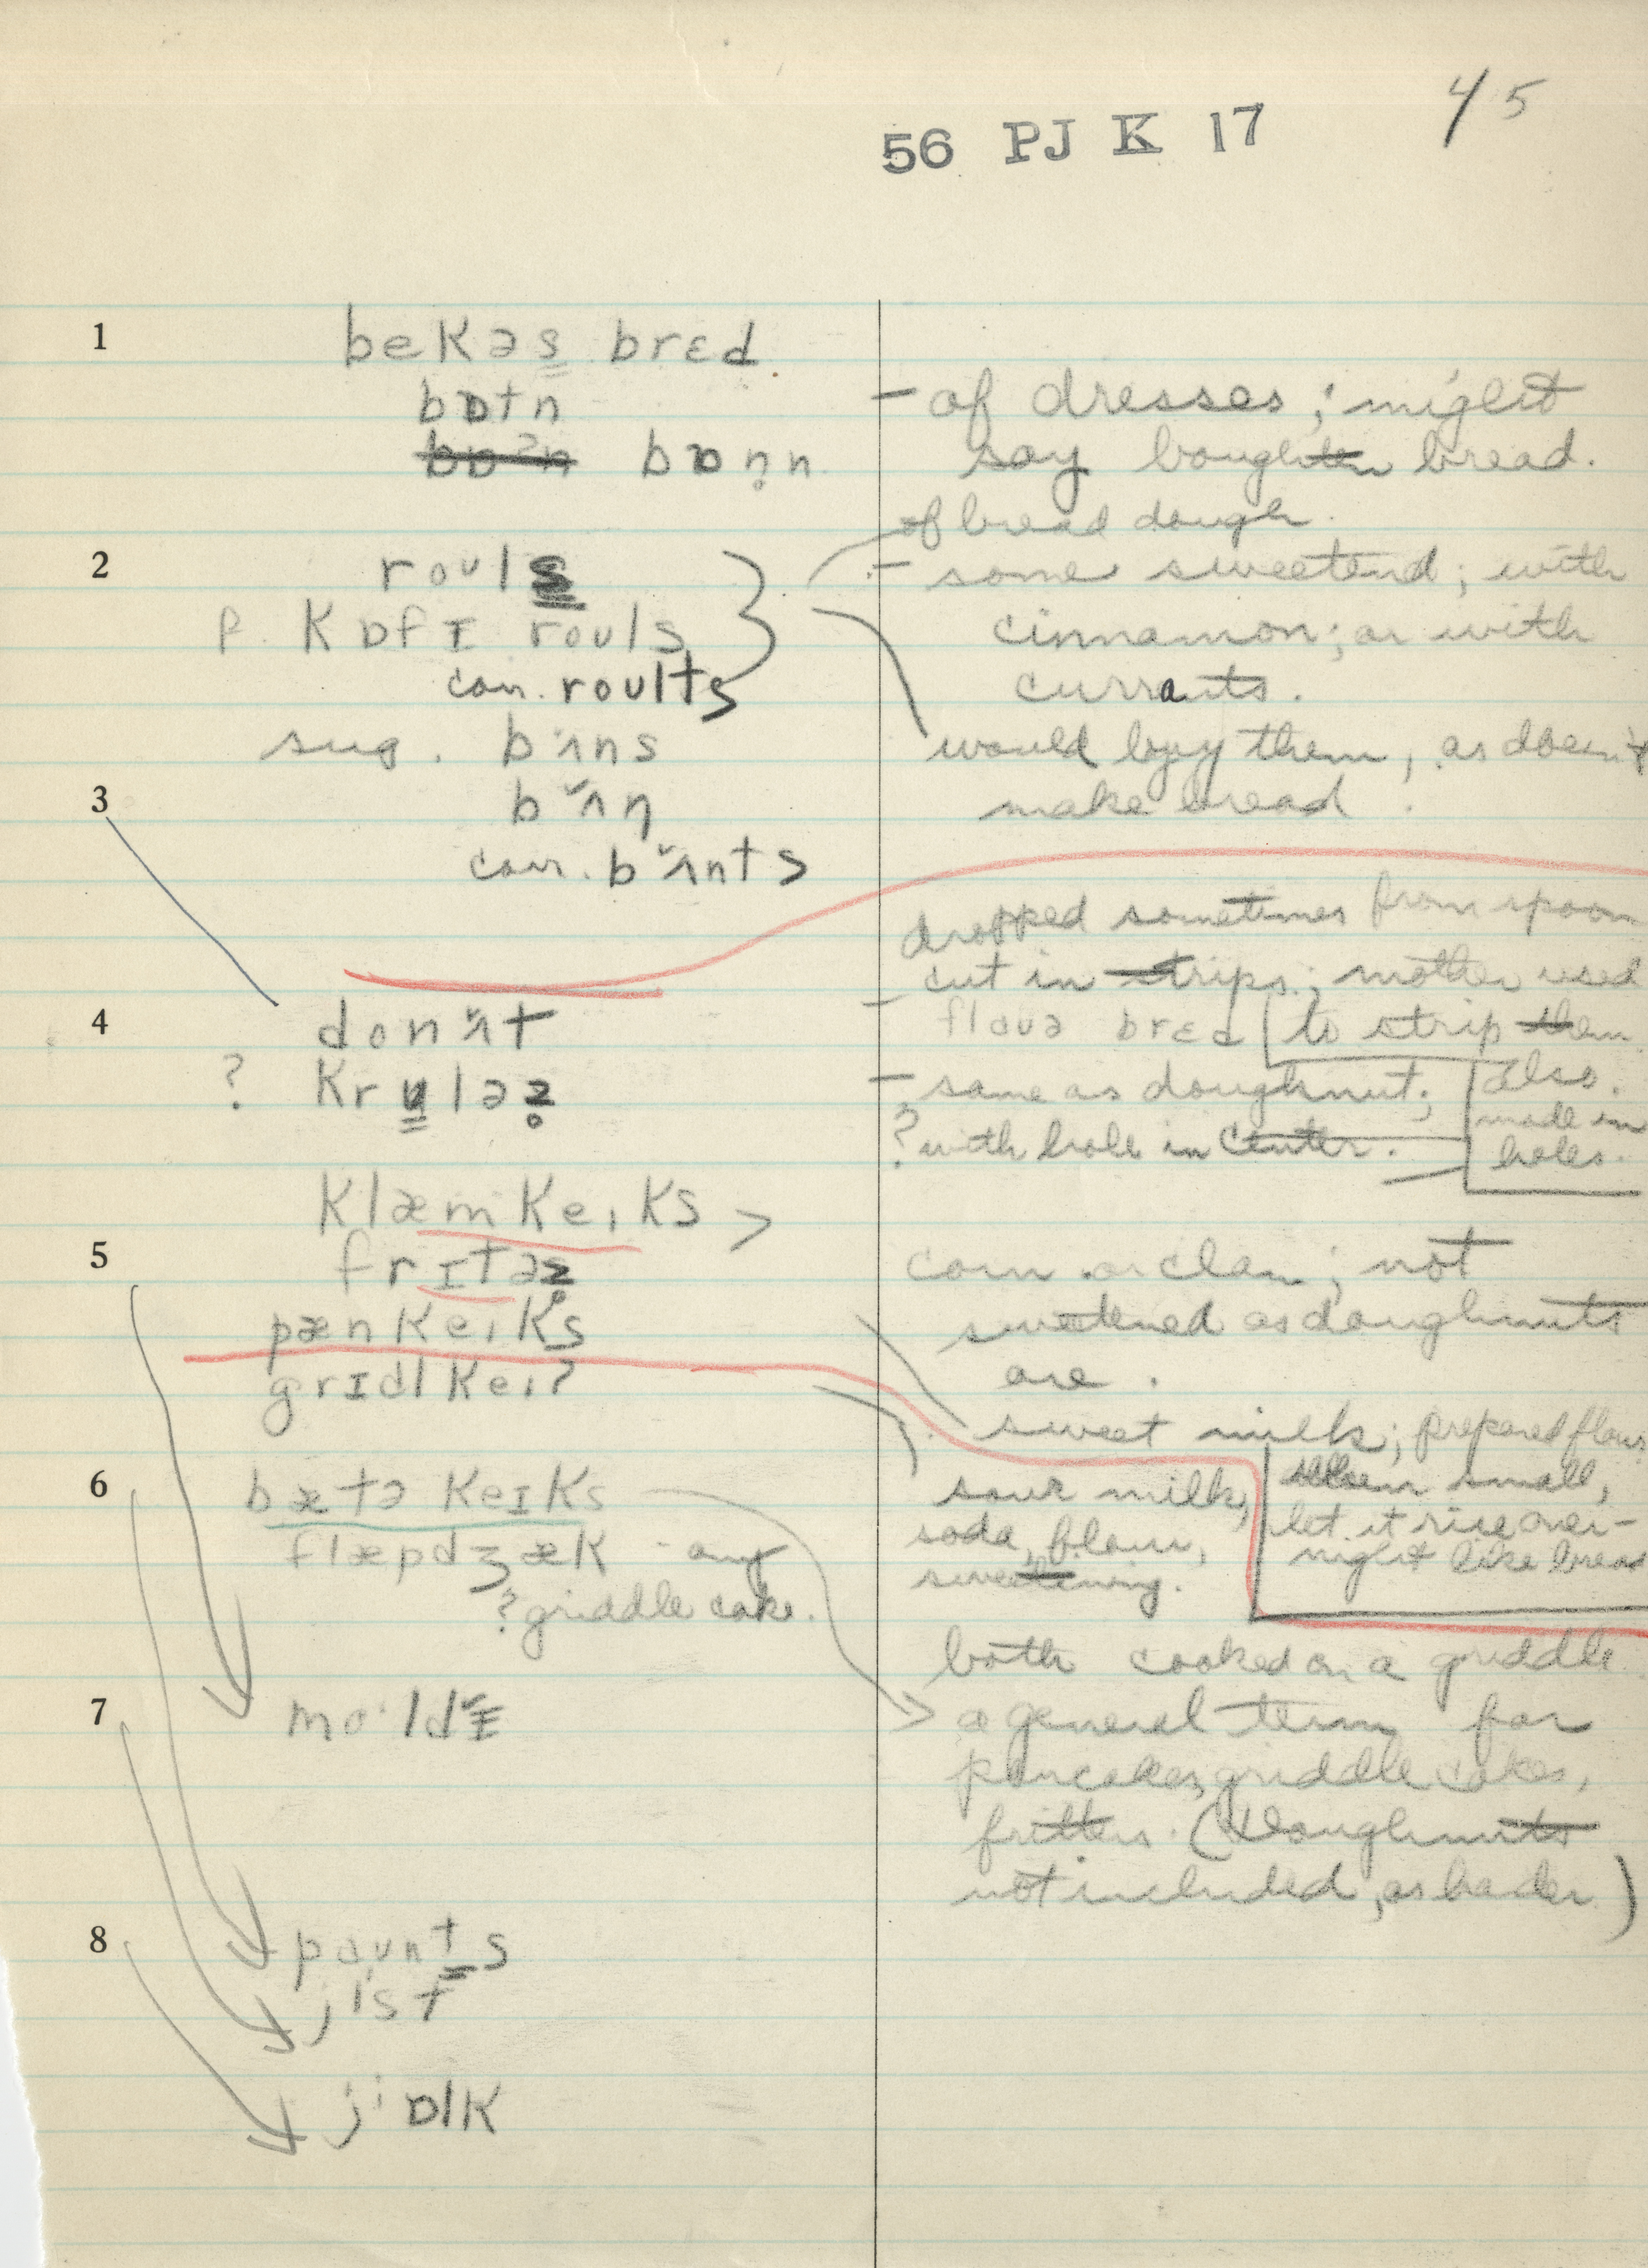 45
56 PJ K 17
1
bekəs brɛd
bɒtn
bɒʔn bɒn̥n
– of dresses; might
say boughten bread.
of bread dough.
2
roʊls
f. kɒfɪ roʊls
corr. roʊlts
– some sweetend; with
cinnamon; or with
currants.
sug. bʌns
bʌn
corr. bʌnts
would buy them, as doesn't
make bread.
3
dropped sometimes from spoon
cut in strips; mother used
flaʊə brɛd to strip them
also.
4
donʌt
? krʉləz̥
– same as doughnut;
? with hole in center.
made in
holes.
klæmkeɪks >
5
frɪtəz̥
pænkeɪks
grɪdlkeɪ?
corn or clam; not
sweetened as doughnuts
are.
sweet milk; prepared flour
small,
let it rise over-
night like bread
sour milk,
soda, flour,
sweetening.
6
bætə keɪks
flæpdʒæk - any
? griddle cake.
both cooked on a griddle
a general term for
pancakes, griddle cakes,
fritters. (Doughnuts
not included, as harder)
7
mo·ldɪ
8
paʊnts
jist
jɒlk